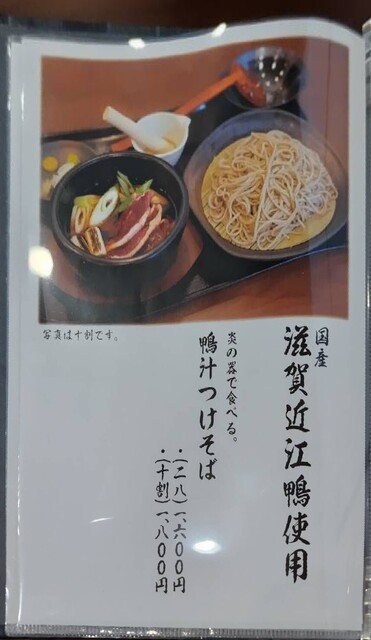 国産
滋賀近江鴨使用
炎の器で食べる。
鴨汁つけそば
・(二八)一、六〇〇円
・(十割)一、八〇〇円
写真は十割です。